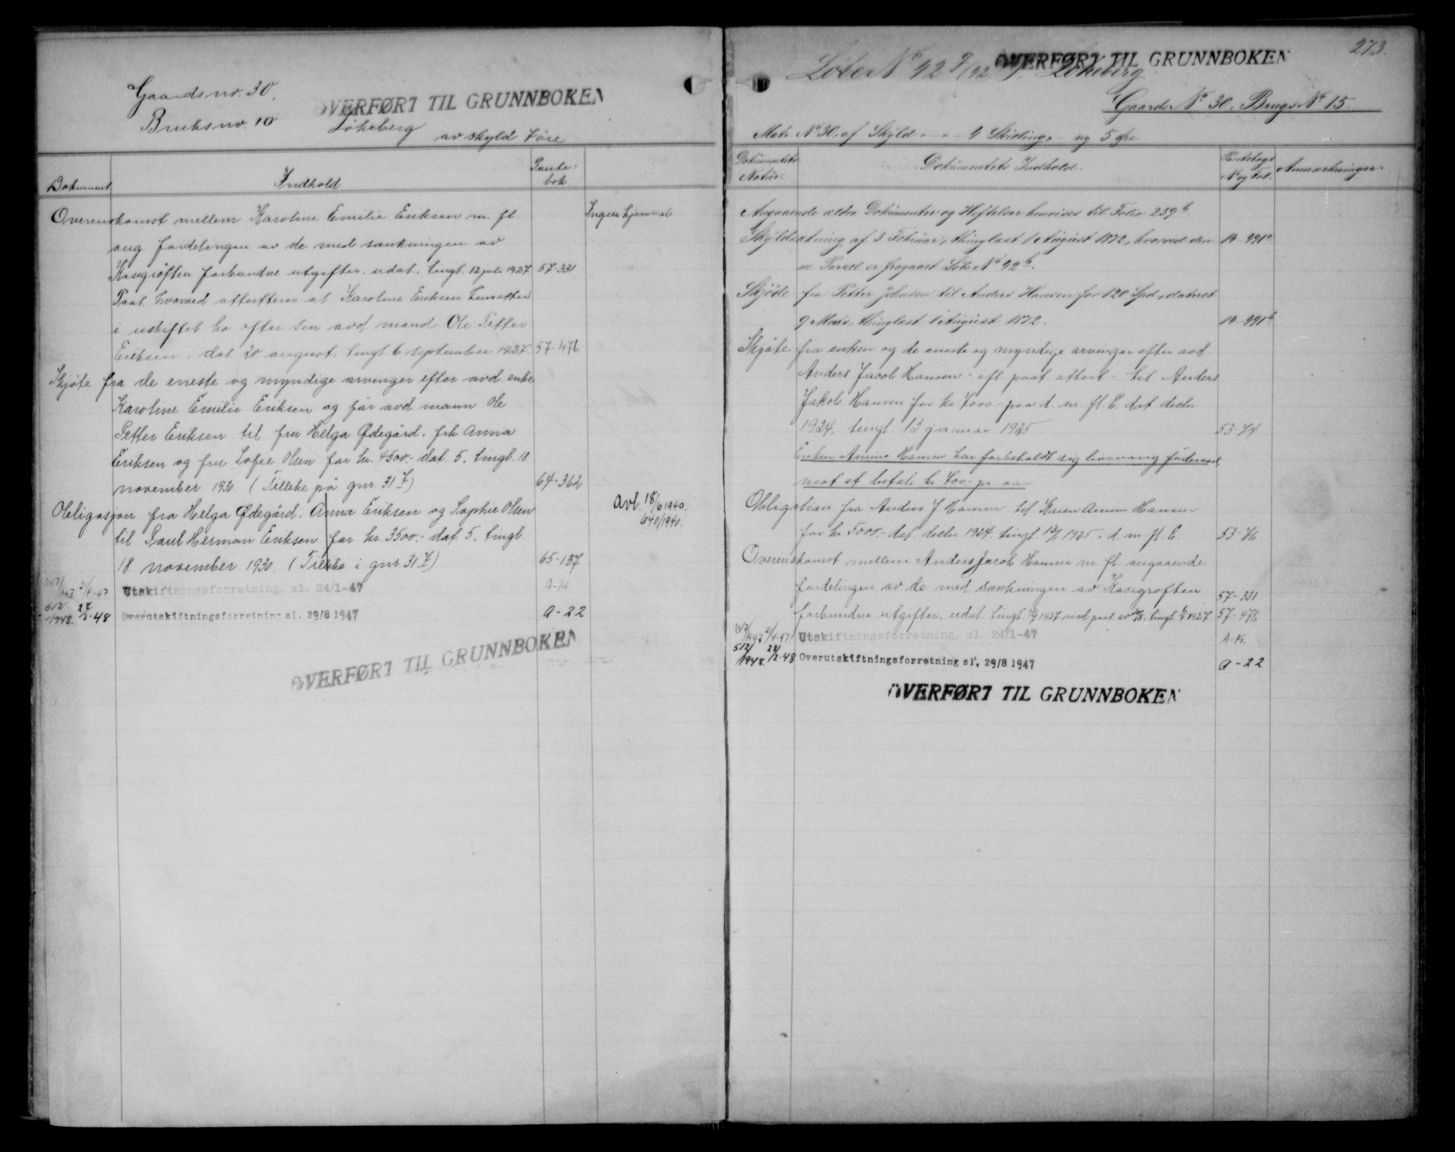 Gaardsno. 30.
Bruksno. 10
OVERFØRT TIL GRUNNBOKEN
Løkeberg av skyld øre
Dokument Indhold Pante-
bok
Overenskomst mellem Karoline Emilie Eriksen m. fl. Ingen hjemmel
ang. fordelingen av de med sænkningen av
forbundne utgifter. udat. tingl. 12 juli 1927. 57-331
Paat. hvorved attesteres at Karoline Eriksen hensitter
i uskiftet bo efter sin avd. mand Ole Petter
Eriksen. dat. 20 august. tingl. 6 september 1927. 57-476
Skjøte fra de eneste og myndige arvinger efter avd. enke
Karoline Emilie Eriksen og før avd. mann Ole
Petter Eriksen til fru Helga Ødegård. frk. Anna
Eriksen og fru Sofie Olsen for kr. 4500.- dat. 5. tingl. 18
november 1930. (Tillike på gnr. 31 7) 64-362
Obligasjon fra Helga Ødegård. Anna Eriksen og Sophie Olsen Avl. 18/6 1940.
til Paul Herman Eriksen for kr. 3500.- dat. 5. tingl. 640/1940.
18 november 1930. (Tillike i gnr. 31 7) 65-157
Utskiftningsforretning sl. 24/1-47
512/1948. 27/2-48 Overutskiftningsforretning sl. 29/8 1947 A-22
OVERFØRT TIL GRUNNBOKEN
273.
OVERFØRT TIL GRUNNBOKEN
Løbe No 92 Løkeberg
Gaards No 30, Brugs No 15.
Matr. No 30, af Skyld - - 9 Skilling, ny 5 øre
Dokumentets
Natur. Dokumentets Indhold. Pantebogs
No og Fol. Anmærkninger.
Angaaende ældre Dokumenter og Heftelser henvises til Folio 259b.
Skyldsætning af 3 Februar, thinglæst 1 August 1872, hvorved den-
ne Parcel er fragaaet Løbe No 92b. 14-491a
Skjøde fra Petter Johnsen til Anders Hansen for 120 Spd, dateret
9 Marts, thinglæst 1 August 1872. 14-491b
Skjøte fra enken og de eneste og myndige arvinger efter avd.
Anders Jacob Hansen - efl. paat. attest - til Anders
Jakob Hansen for kr. 7000 - paa d. m. fl. E. dat. decbr.
1924. tingl. 13 januar 1925 53-74
Enken Anna Hansen har forbeholdt sig livsvarig føderaad
Obligation fra Anders J. Hansen til Karen Anna Hansen
for kr. 5000.- dat. decbr. 1924. tingl. 13/1 1925. d. m. fl. E. 53-76
Overenskomst mellem Anders Jacob Hansen m. fl. angaaende
fordelingen av de med sænkningen av
forbundne utgifter. udat. tingl. 12/7 1927 med paat. av 20/8. tingl. 6/9 1927 57-331
57-476
Utskiftningsforretning, sl. 24/1-47
512/1948. 27/2-48 Overutskiftningsforretning sl. 29/8 1947 A-22
OVERFØRT TIL GRUNNBOKEN